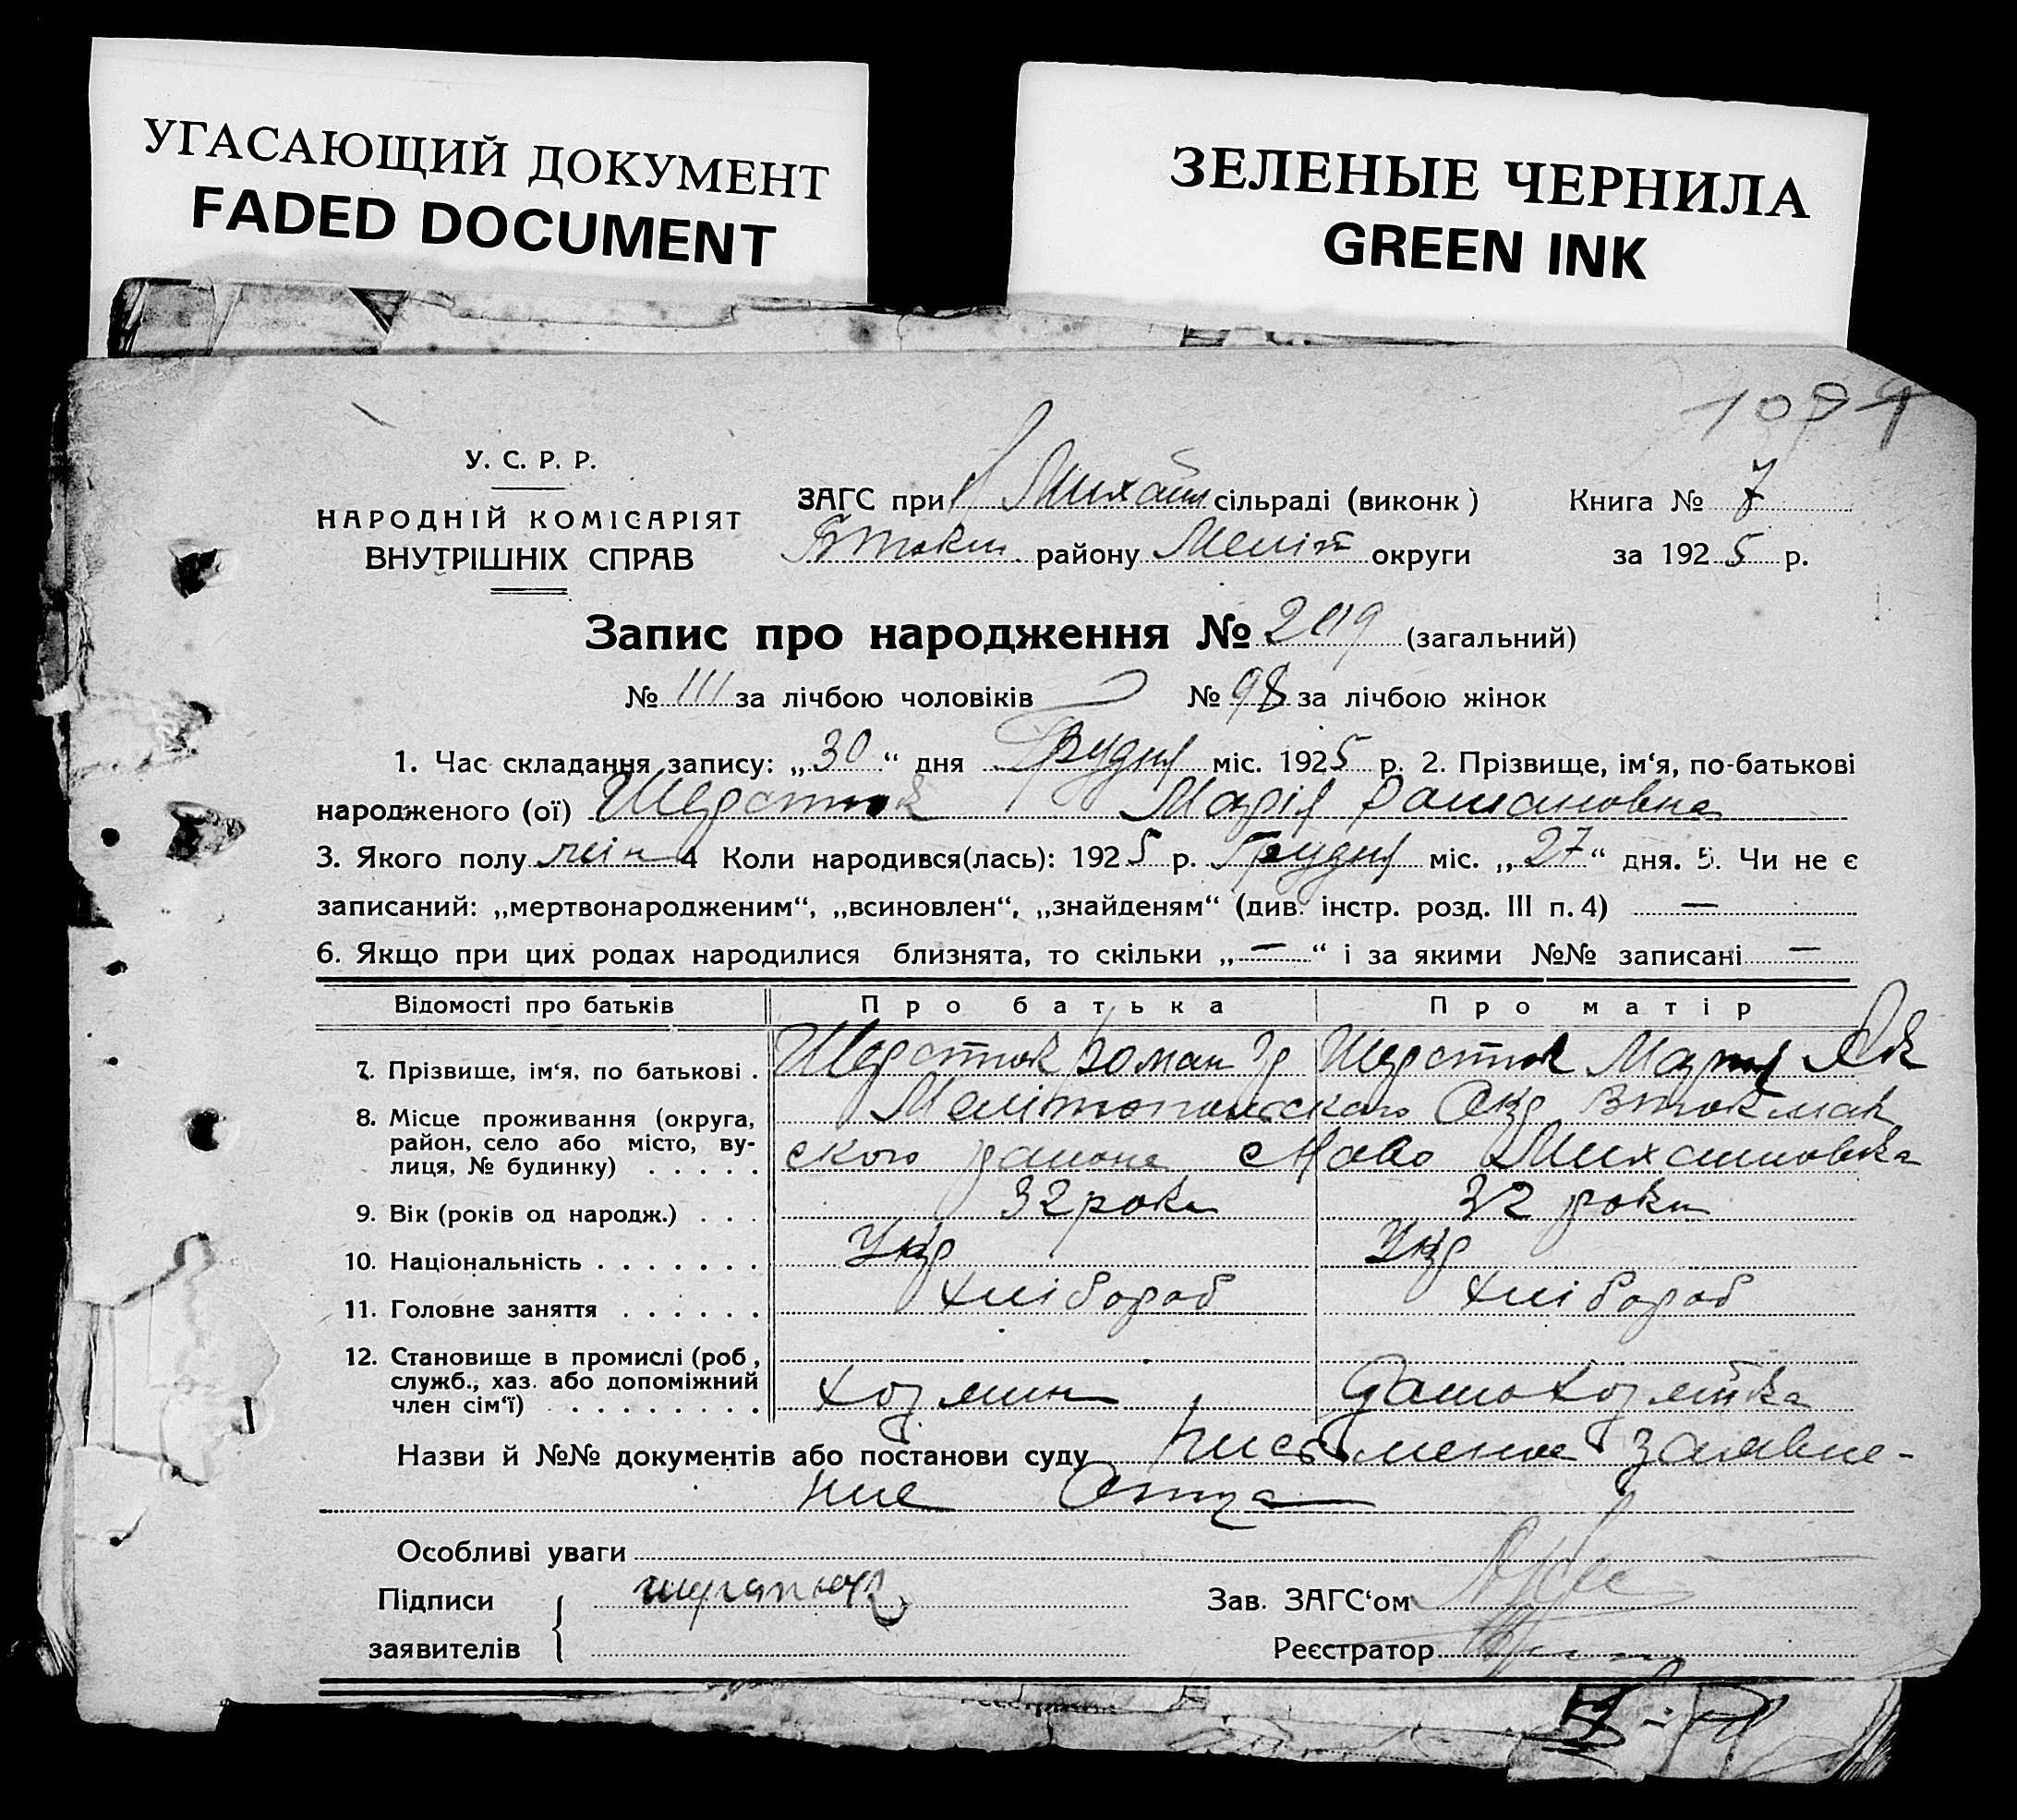 УГАСАЮЩИЙ ДОКУМЕНТ
FADED DOCUMENT
ЗЕЛЕНЫЕ ЧЕРНИЛА
GREEN INK
У. С. Р. Р.
НАРОДНІЙ КОМІСАРІЯТ
ВНУТРІШНІХ СПРАВ
ЗАГС при Михайл сільраді (виконк)
Втокм. району Меліт округи
Книга № 7
за 1925 р.
Запис про народження № 209 (загальний)
№ 111 за лічбою чоловіків № 98 за лічбою жінок
1. Час складання запису: „30“ дня Грудня міс. 1925 р. 2. Прізвище, ім‘я, по-батькові
народженого (ої) Шерстюк Марія Романовна
3. Якого полу жін 4 Коли народився(лась): 1925 р. Грудня міс. „27“ дня. 5. Чи не є
записаний: „мертвонародженим“, „всиновлен“, „знайденям“ (див. інстр. розд. III п. 4) —
6. Якщо при цих родах народилися близнята, то скільки „—“ і за якими №№ записані —
Відомості про батьків Про батька Про матір
7. Прізвище, ім‘я, по батькові . Шерстюк Роман Гр Шерстюк Мария Як
8. Місце проживання (округа, район, село або місто, вулиця, № будинку) . . . . . Мелітопольского Окр Втокмак
ского района с Ново Михайловка
9. Вік (років од народж.) . . . 32 роки 32 роки
10. Національність . . . . . . . Укр Укр
11. Головне заняття . . . . . . хлібороб хлібороб
12. Становище в промислі (роб, служб., хаз. або допоміжний член сім‘ї) . . . . . . . . хозяин Домохозяйка
Назви й №№ документів або постанови суду письменное заявле-
ние Отца
Особливі уваги
Підписи заявителів
Зав. ЗАГС‘ом
Реєстратор